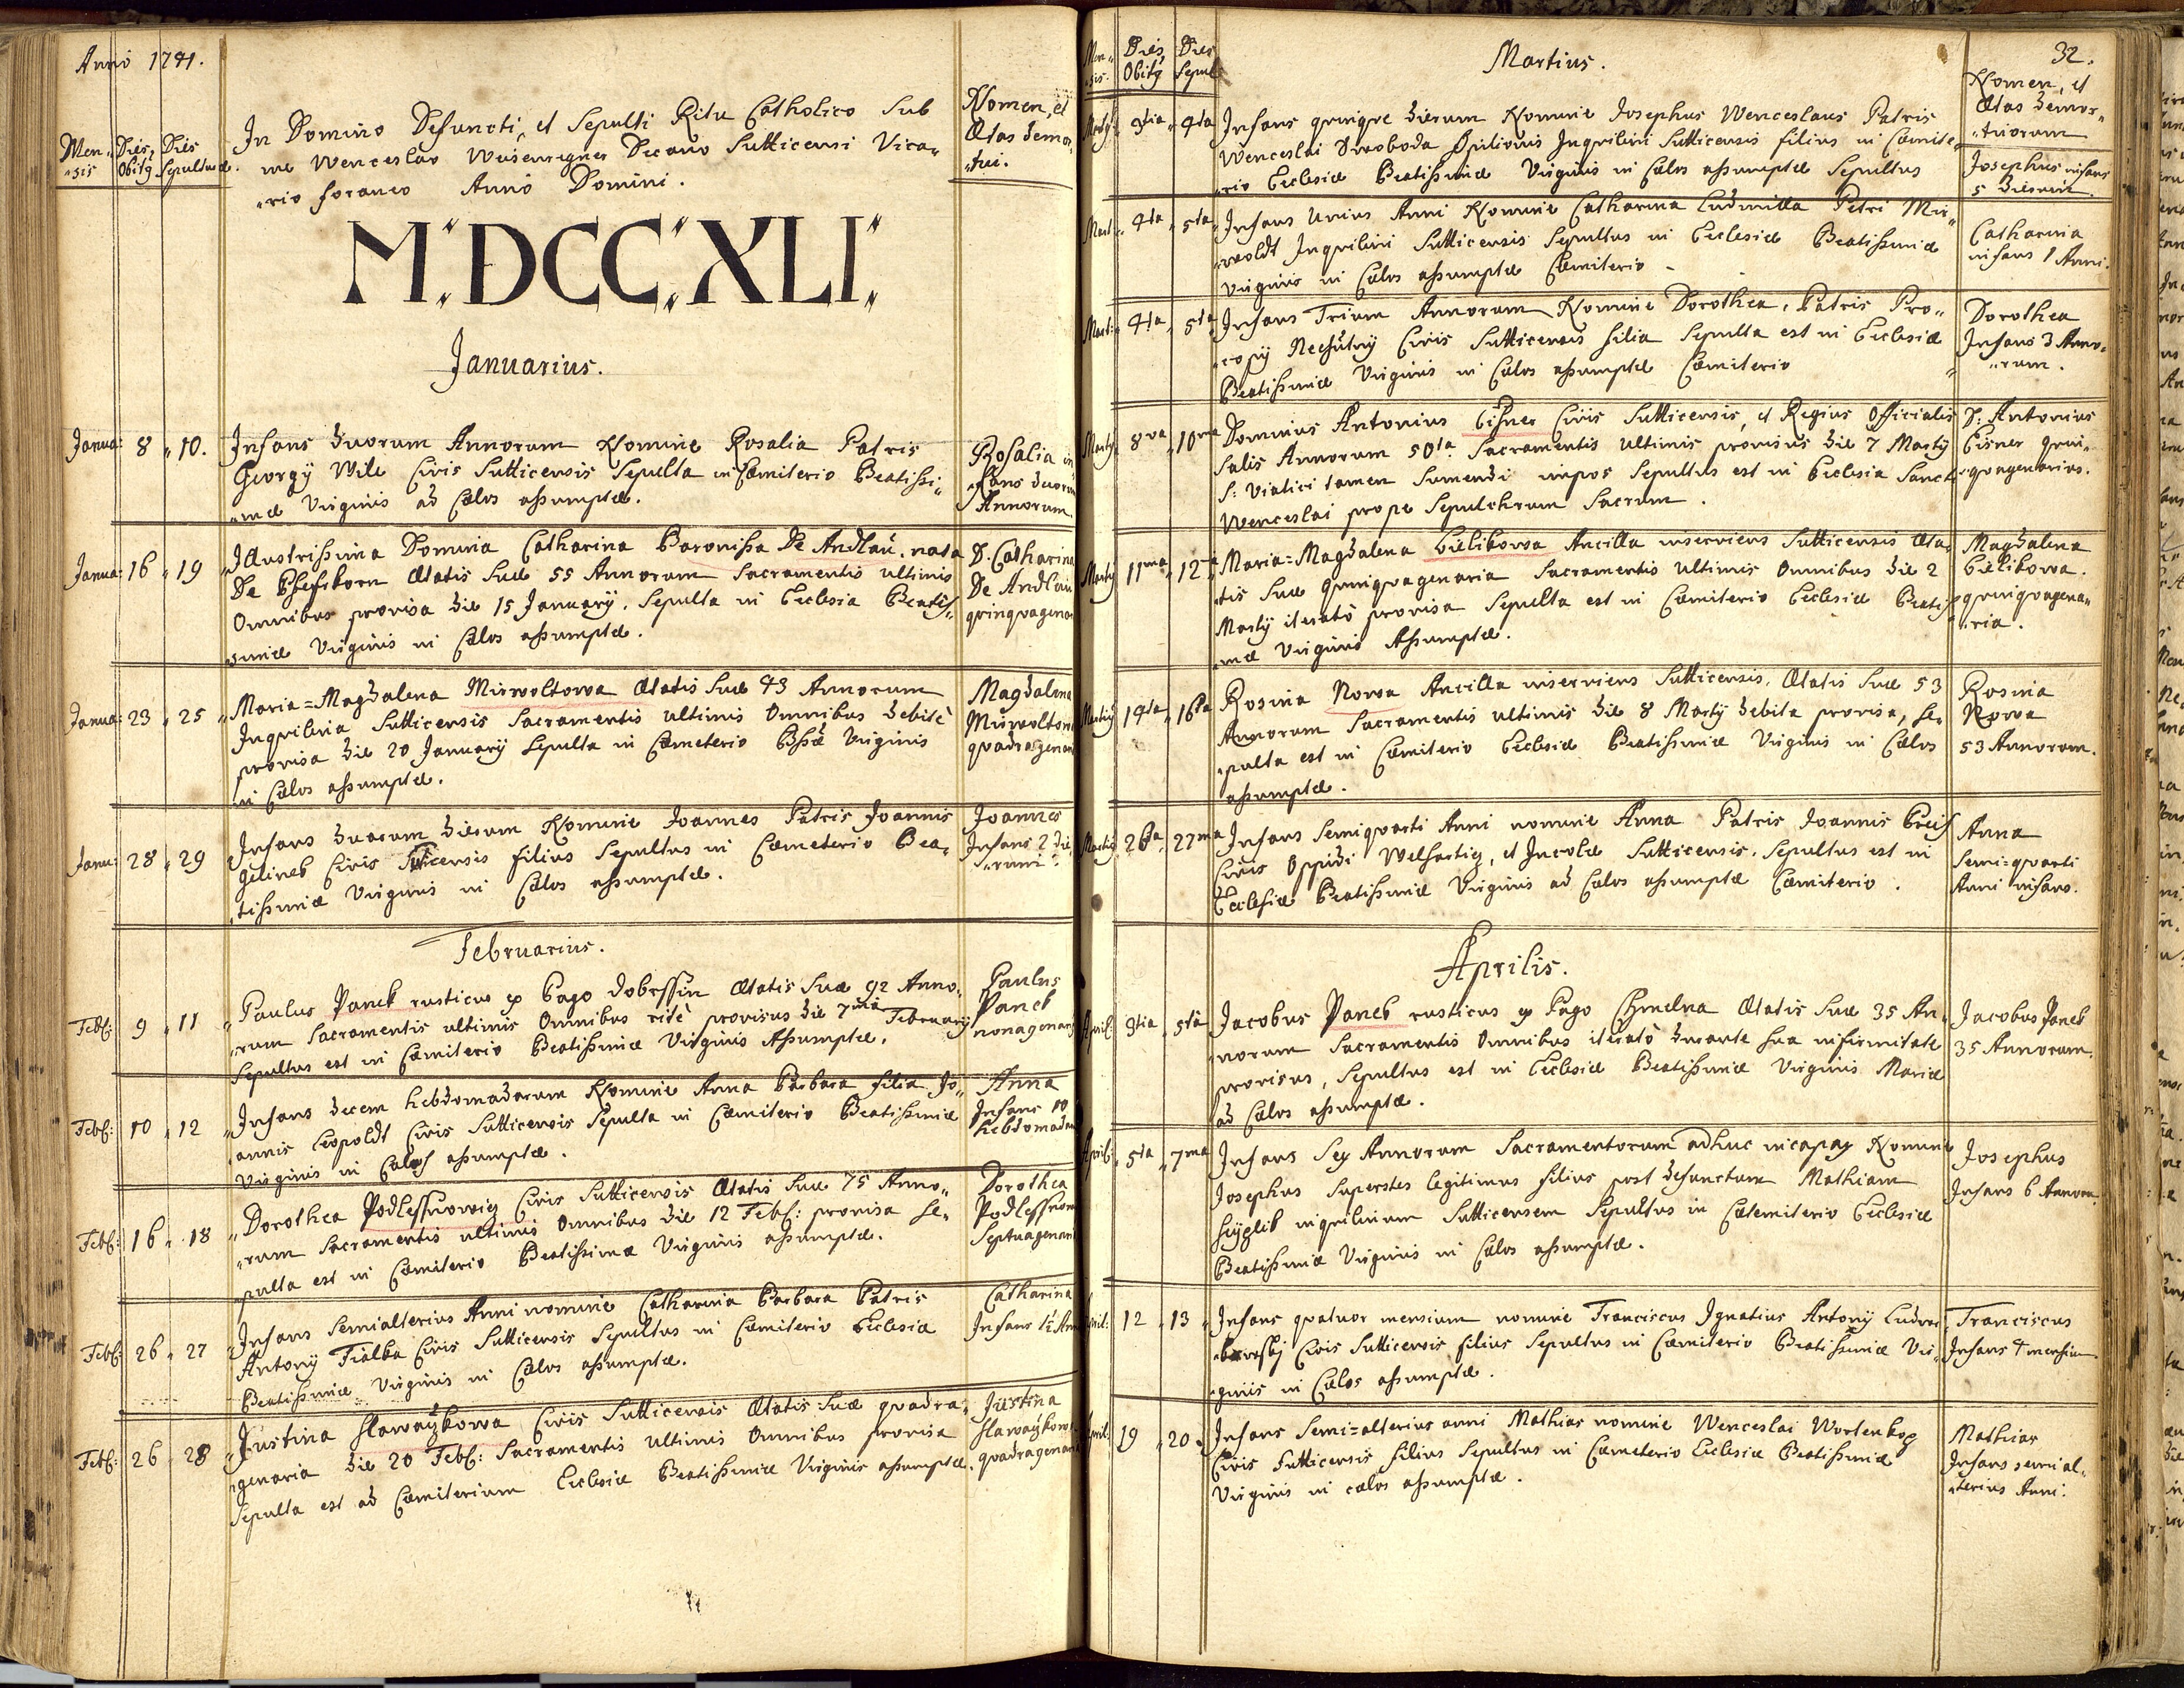 Anno 1741.
Men-
"sis
Dies
Obitg
Dies
Sepultura.
In Domino Defuncti, et Sepulti Ritu Catholico Sub
me Wenceslao Decano Sutticensi Vica-
"rio foraneo Anno Domini.
Nomen, et
Ætas demor
"tui.
M"DCC"XLI"
Januarius.
Janua: 8 " 10. Infans duorum Annorum Nomine Rosalia Patris
Georgÿ Wile Civis Sutticensis Sepulta in Cœmiterio Beatissi-
"mæ Virginis ad Cælos assumptæ.
Rosalia in
"fans duorum
Annorum
Janua: 16 " 19 Illustrissima Domina Catharina Baronissa De Andlau, nata
De Ætatis Suæ 55 Annorum Sacramentis ultimis
Omnibus provisa die 15 Januarÿ. Sepulta in Ecclesia Beatis-
"simæ Virginis in Cælos assumptæ.
D. Catharina
De Andlau
quinquagena
Janua: 23 " 25 "Maria=Magdalena Mirwoltowa Ætatis Suæ 43 Annorum
Inquilina Sutticensis Sacramentis ultimis Omnibus debitè
provisa die 20 Januarÿ Sepulta in Cœmeterio Bssæ Virginis
in Cælos assumptæ.
Magdalena
Mirwoltow
quadragenar
Janu: 28 " 29 Infans duarum dierum Nomine Joannes Patris Joannis
Gelinek Civis Sutticensis filius Sepultus in Cœmeterio Bea-
"tissimæ Virginis in Cælos assumptæ.
Joannes
Infans 2 die
"rum.
Februarius.
Feb: 9 " 11 "Paulus Panek rusticus ex Pago Dobrssin Ætatis Suæ 92 Anno-
"rum Sacramentis ultimis Omnibus ritè provisus die 7ma Februarÿ
Sepultus est in Cœmiterio Beatissimæ Virginis Assumptæ.
Paulus
Panek
nonagenari
Feb: 10 " 12 "Infans decem hebdomadarum Nomine Anna Barbara filia Jo-
"annis Leopoldt Civis Sutticensis Sepulta in Cœmiterio Beatissimæ
Virginis in Cælos assumptæ.
Anna
Infans 10
hebdomadar
Feb: 16 " 18 "Dorothea Podlessnowig Civis Sutticensis Ætatis Suæ 75 Anno-
"rum Sacramentis ultimis Omnibus die 12 Feb: provisa Se-
"pulta est in Cœmiterio Beatissimæ Virginis assumptæ.
Dorothea
Podlessnow
Septuagenari
Feb: 26 " 27 Infans Semialterius Anni nomine Catharina Barbara Patris
Antonÿ Fialka Civis Sutticensis Sepultus in Cœmiterio Ecclesiæ
Beatissimæ Virginis in Cælos assumptæ.
Catharina
Infans 1½ Ann
Feb: 26 " 28 "Justina Slawaÿkowa Civis Sutticensis Ætatis Suæ quadra-
"genaria die 20 Feb: Sacramentis ultimis Omnibus provisa
Sepulta est ad Cœmiterium Ecclesiæ Beatissimæ Virginis assumptæ.
Justina
Slawaÿkow
quadragenar
Men-
sis.
Dies
Obitg
Dies
Sepul
Martius.
32.
Nomen, et
Ætas demor-
"tuorum
3tia " 4ta Infans quinque dierum Nomine Josephus Wenceslaus Patris
Wenceslai Swoboda Opilionis Inquilini Sutticensis filius in Cœmite-
"rio Ecclesiæ Beatissimæ Virginis in Cælos assumptæ Sepultus
Josephus infans
5 dierum.
Mart: 4ta " 5ta Infans Unius Anni Nomine Catharina Ludmilla Petri Mir-
"woldt Inquilini Sutticensis Sepultus in Ecclesiæ Beatissimæ
Virginis in Cælos assumptæ Cœmiterio -
Catharina
infans 1 Anni.
Mart: 4ta " 5ta Infans Trium Annorum Nomine Dorothea, Patris Pro-
"copÿ Nechutnÿ Civis Sutticensis filia Sepulta est in Ecclesiæ
Beatissimæ Virginis in Cælos assumptæ Cœmiterio
Dorothea
Infans 3 Anno-
"rum.
Martÿ 8va " 10ma Dominus Antonius Eisner Civis Sutticensis, et Regius Officialis
Salis Annorum 50ta Sacramentis Ultimis provisus die 7 Martÿ
S: Viatici tamen Sumendi impos Sepultus est in Ecclesia Sancti
Wenceslai prope Sepulchrum Sacrum.
D: Antonius
Eisner quin-
"quagenarius.
Martÿ 11ma " 12a Maria=Magdalena Bilikowa Ancilla inserviens Sutticensis Æta-
"tis Suæ quinquagenaria Sacramentis Ultimis Omnibus die 2
Martÿ iteratò provisa Sepulta est in Cœmiterio Ecclesiæ Beatiss-
"mæ Virginis Assumptæ.
Magdalena
Bilikowa.
quinquagena-
"ria.
Martÿ 14ta " 16ta Rosina Nowa Ancilla inserviens Sutticensis, Ætatis Suæ 53
Annorum Sacramentis ultimis die 8 Martÿ debita provisa, Se-
"pulta est in Cœmiterio Ecclesiæ Beatissimæ Virginis in Cælos
assumptæ.
Rosina
Nowa
53 Annorum.
Martÿ 26ta " 27ma Infans Semiquarti Anni nomine Anna Patris Joannis Preis
Civis Oppidi Welhartig, et Incolæ Sutticensis. Sepultus est in
Ecclesiæ Beatissimæ Virginis ad Cælos assumptæ Cœmiterio.
Anna
Semi=quarti
Anni infans.
Aprilis.
April: 3tia " 5ta Jacobus Panek rusticus ex Pago Chmelna Ætatis Suæ 35 An-
"norum Sacramentis Omnibus iteratò durante Sua infirmitate
provisus, Sepultus est in Ecclesiæ Beatissimæ Virginis Mariæ
ad Cælos assumptæ.
Jacobus Panek
35 Annorum.
April: 5ta " 7ma Infans Sex Annorum Sacramentorum adhuc incapax Nomine
Josephus Superstes legitimus filius post defunctum Mathiam
inquilinum Sutticensem Sepultus in Cœtemiterio Ecclesiæ
Beatissimæ Virginis in Cælos assumptæ.
Josephus
Infans 6 Annoru
April: 12 " 13 Infans quatuor mensium nomine Franciscus Ignatius Antonÿ Ludwi
Civis Sutticensis filius Sepultus in Cœmiterio Beatissimæ Vir-
"ginis in Cælos assumptæ.
Franciscus
Infans 4 mensium
April: 19 " 20. Infans Semi=alterius anni Mathias nomine Wenceslai Wortenkop
Civis Sutticensis filius Sepultus in Cœmeterio Ecclesiæ Beatissimæ
Virginis in cælos assumptæ.
Mathias
Infans semial-
"terius Anni.